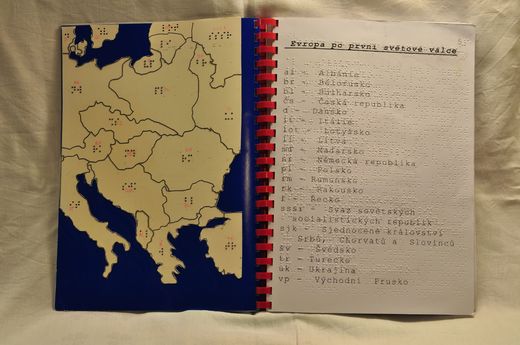 Evropa po první světové válce
al - Albánie
br - Bělorusko
bl - Bulharsko
čs - Česká republika
d - Dánsko
it - Itálie
lot - Lotyšsko
li - Litva
mř - Maďarsko
nr - Německá republika
pl - Polsko
rm - Rumunsko
rk - Rakousko
ř - Řecko
sssr - Svaz sovětských
socialistických republik
sjk - Sjednocené království
Srbů, Chorvatů a Slovinců
šv - Švédsko
tr - Turecko
uk - Ukrajina
vp - Východní Prusko